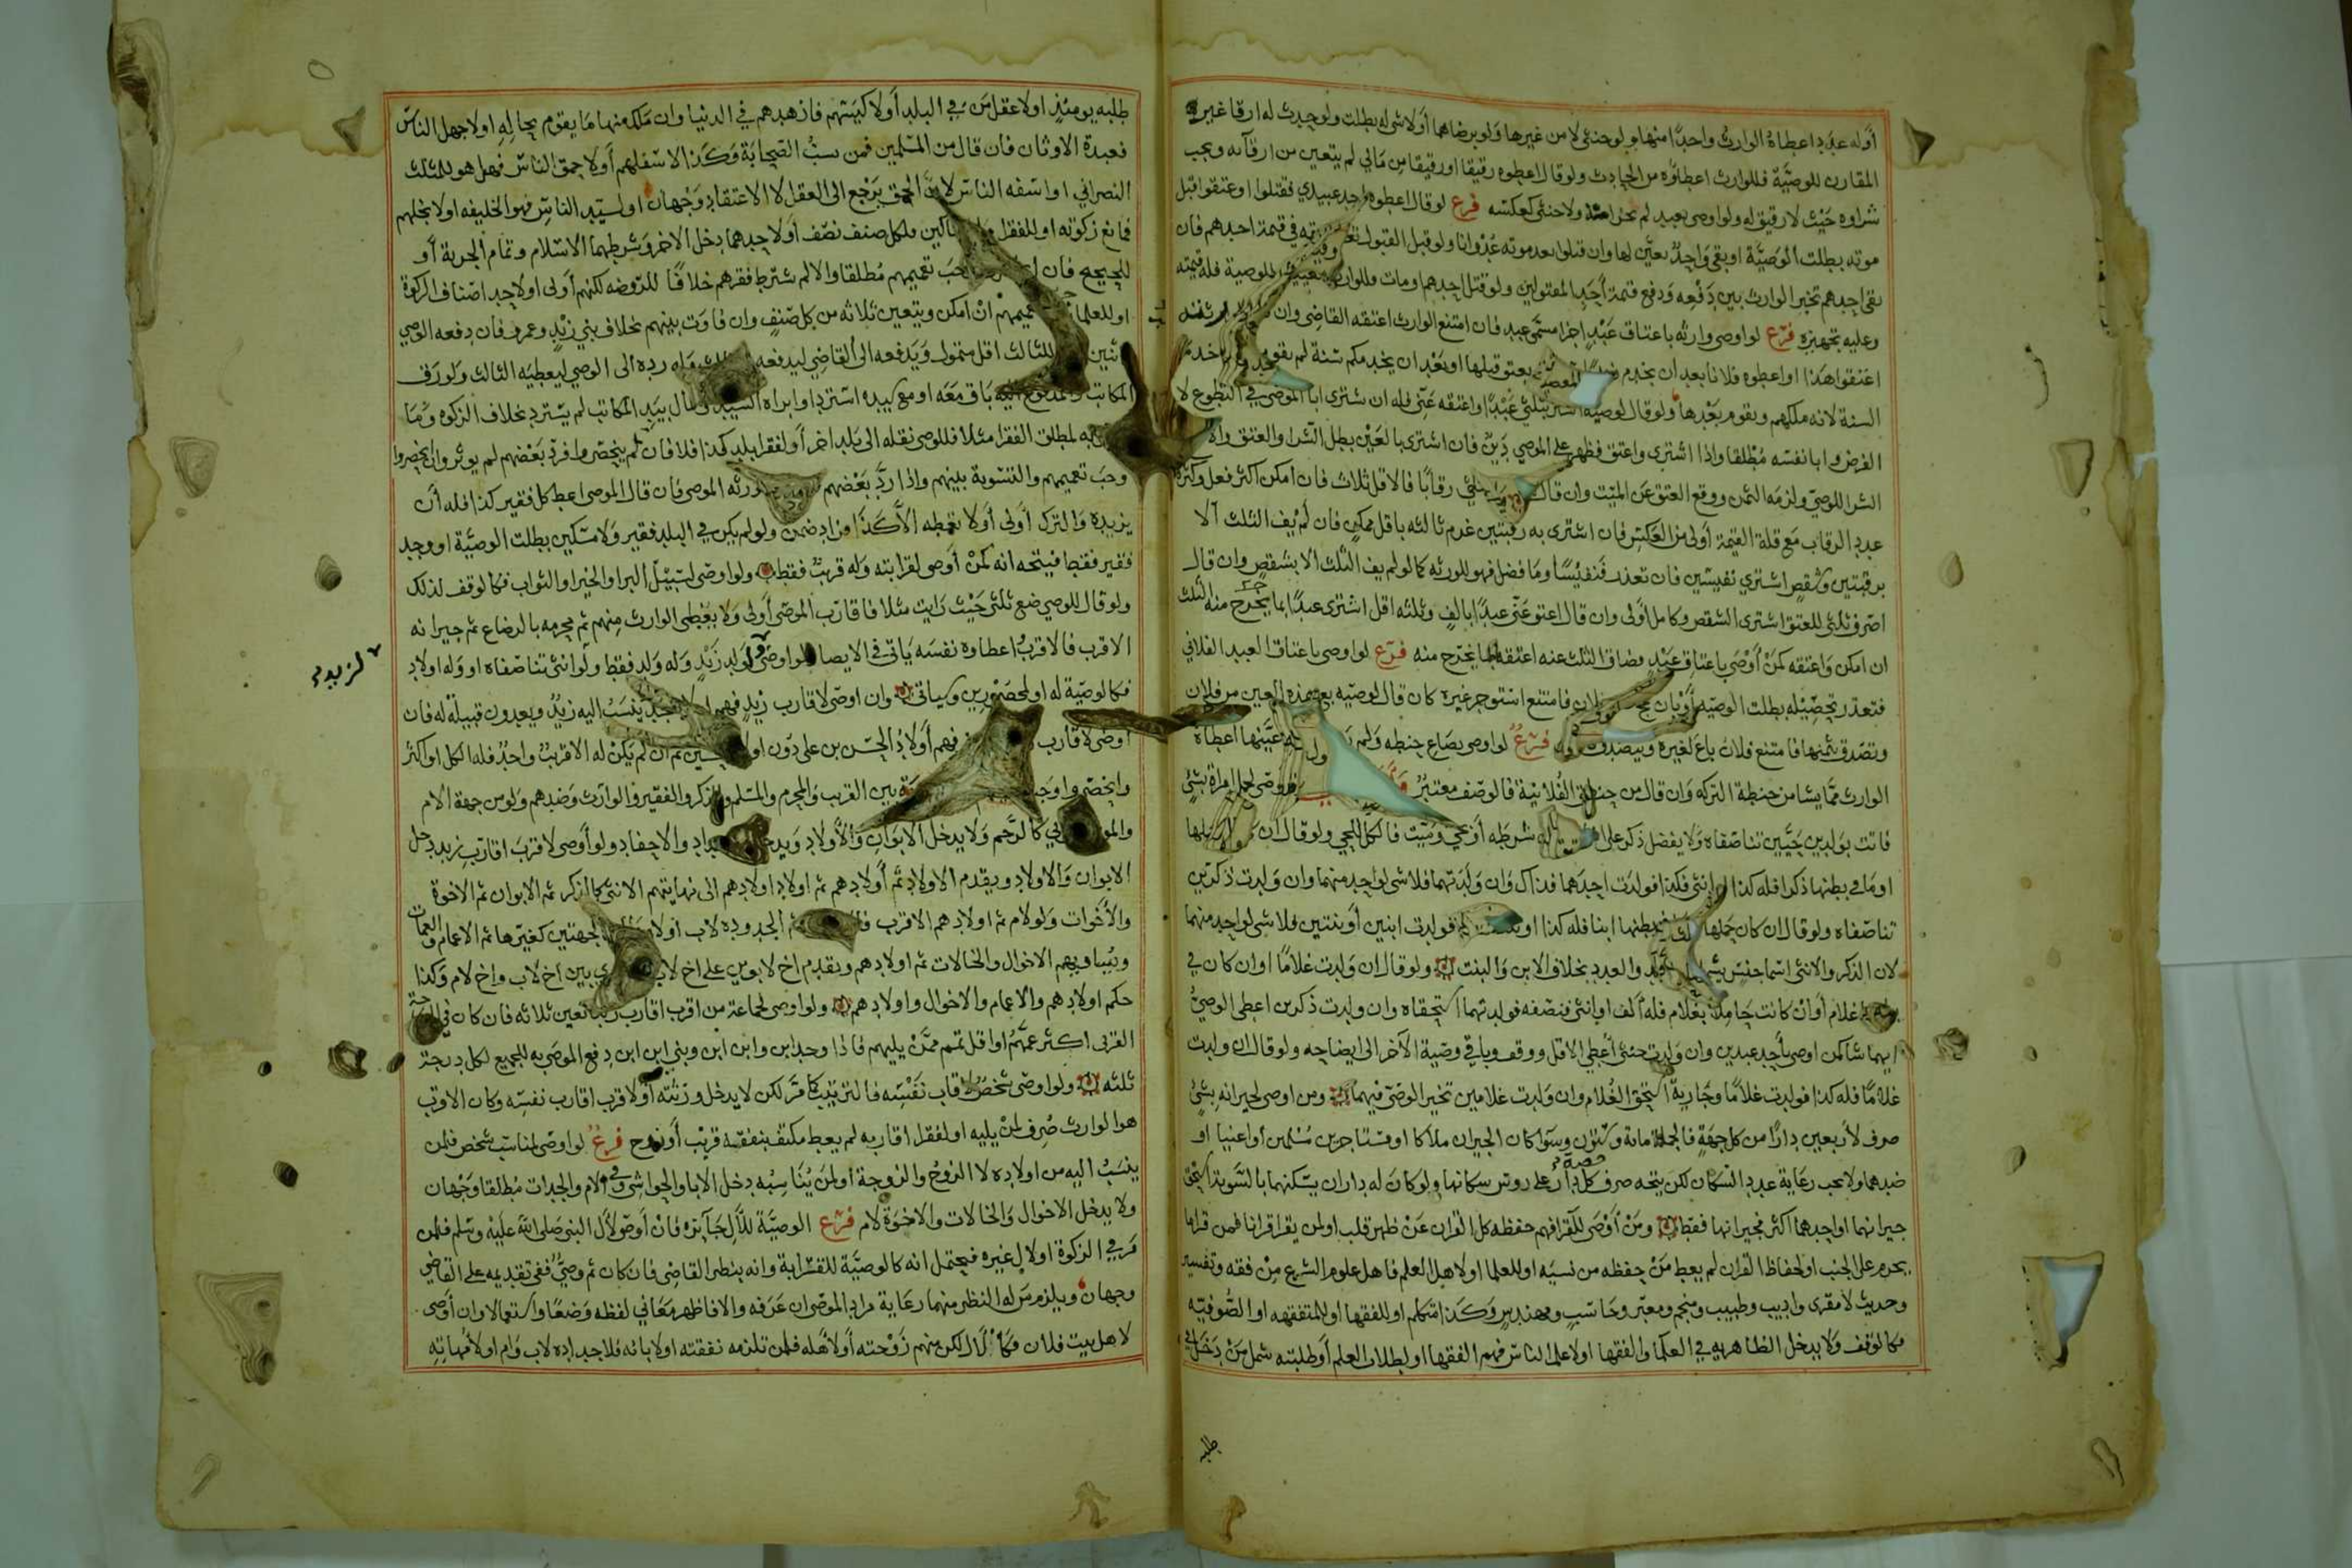 أوله عبد اعطاه الوارث واحدا منها ولو خنثى لا من غيرها ولو برضاهما أو لا شى له بطلت ولو حدث له ارقا غير
المقارن للوصية فللوارث اعطاؤه من الحادث ولو قال اعطوه رقيقا او رقيقا من مالي لم يتعين من ارقآئه ويجب
شراوه حيث لا رقيق له ولو اوصى بعبد لم يجز امة ولا خنثى كعكسه فرع لو قال اعطوه احد عبيدي فقتلوا او عتقوا قبل
موته بطلت الوصية او بقى واحد تعين لها وان قتلوا بعد موته عدوانا ولو قبل القبول في قيمة احدهم فان
بقى احدهم تخير الوارث بين دفعه ودفع قيمة أحد المقتولين ولو قتل احدهم ومات فللوارث للوصية فله قيمته
وعليه تجهيزه فرع لو اوصى وارثه باعتاق عبد اجزا مسمى عبد فان امتنع الوارث اعتقه القاضى وان
اعتقوا هذا او اعطوه فلانا بعد ان يخدم بعتق قبلها او بعد ان يخدمكم سنة لم يقوم خدمة
السنة لانه ملكهم ويقوم بعدها ولو قال لوصيه اشتر بثلثي عبدا واعتقه عنى فله ان يشترى ابا الموصى في التطوع لا
الفرض وابا نفسه مطلقا واذا اشترى واعتق فظهر على الموصي دين فان اشترى بالعين بطل الشرا والعتق والا
الشرا للوصي ولزمه الثمن ووقع العتق عن الميت وان قال بثلثي رقابا فالاقل ثلاث فان امكن اكثر فعل وكثرة
عدد الرقاب مع قلة القيمة أولى من العكس فان اشترى به رقبتين غرم ثالثه باقل ممكن فان لم يف الثلث الا
برقبتين وشقص اشترى نفيستين فان تعذر فنفيسا وما فضل فهو للورثه كما لو لم يف الثلث الا بشقص وان قال
اصرف ثلثي للعتق اشترى الشقص وكامل أولى وان قال اعتق عني عبدا بالف وثلثه اقل اشترى عبدا بما يخرج منه الثلث
ان امكن واعتقه كمن أوصى باعتاق عبد فضاق الثلث عنه اعتقه بما يخرج منه فرع لو اوصى باعتاق العبد الفلاني
فتعذر تحصيله بطلت الوصيه أو بان يحج فلان فامتنع استوجر غيره كان قال لوصيه بع هذه العين من فلان
وتصدق بثمنها فامتنع فلان باع لغيره ويتصدق به فرع لو اوصى بصاع حنطه ولم عينها اعطاه
الوارث مما يشا من حنطة التركه وان قال من حنطتي الفلانية فالوصف معتبر اوصى لحمل امراة بشئ
فاتت بولدين حيين تناصفاه ولا يفضل ذكر على شرطه أو حي وميت فالكل للحي ولو قال ان
او ما في بطنها ذكرا فله كذا او انثى فكذا فولدت احدهما فذاك وان ولدتهما فلا شى لواحد منهما وان ولدت ذكرين
تناصفاه ولو قال ان كان حملها او ببطنها ابنا فله كذا او فولدت ابنين أو بنتين فلا شى لواحد منهما
لان الذكر والانثى اسما جنس والعدد بخلاف الابن والبنت ولو قال ان ولدت غلاما او ان كان في
غلام أو ان كانت حاملا بغلام فله ألف او بانثى فنصفه فولدتهما استحقاه وان ولدت ذكرين اعطى الوصي
ايهما شا كمن اوصى بأحد عبدين وان ولدت خنثى أعطى الاقل ووقف وباقي وصية الآخر الى ايضاحه ولو قال ان ولدت
غلاما فله كذا فولدت غلاما وجارية استحق الغلام وان ولدت غلامين تخير الوصى فيهما ومن اوصى لجيرانه بشئ
صرف لأربعين دارا من كل جهة فالجملة مائة وستون وسوا كان الجيران ملاكا او مستاجرين مسلمين أو اغنيا او
ضدهما ولا يجب رعاية عدد السكان لكن يتجه صرف حصة كل دار على روس سكانها ولو كان له داران يسكنهما بالسوية استحق
جيرانهما او احدهما اكثر فجيرانها فقط ومن أوصى للقرا فهم حفظه كل القران عن ظهر قلب او لمن يقرا قرانا فمن قراها
يحرم على الجنب او لحفاظ القران لم يعط من حفظه من نسيه او للعلما او لاهل العلم فاهل علوم الشرع من فقه وتفسير
وحديث لا مقرى واديب وطبيب ومنجم ومعبر وحاسب ومهندس وكذا متكلم او للفقها او للمتفقهه او الصوفيه
فكالوقف ولا يدخل الظاهريه في العلما والفقها او لاعلم الناس فهم الفقها او لطلاب العلم أو طلبته شمل من دخل في
طلبه
طلبه يومئذ او لاعقل من في البلد أو لاكيسهم فازهدهم في الدنيا وان ملك منها ما يقوم بحاله او لاجهل الناس
فعبدة الاوثان فان قال من المسلمين فمن يسب الصحابة وكذا لاسفلهم أو لاحمق الناس فهل هو للمثلث
النصراني او اسفه الناس لان الحمق يرجع الى العقل لا الاعتقاد وجهان او لسيد الناس فهو الخليفه او لابخلهم
فمانع زكوته او للفقرا والمساكين فلكل صنف نصف أو لاحدهما دخل الاخر وشرطهما الاسلام وتمام الحرية أو
للحجيج فان وجب تعميمهم مطلقا والا لم يشترط فقرهم خلافا للروضه لكنهم أولى او لاحد اصناف الزكوة
او للعلما تعميمهم ان امكن ويتعين ثلاثه من كل صنف وان فاوت بينهم بخلاف بني زيد وعمرو فان دفعه الوصي
اثنين للثالث اقل متمول ويدفعه الى القاضي ليدفعه وله رده الى الوصي ليعطيه الثالث ولو رق
المكاتب والمدفوع اليه باق معه او مع سيده استرد او ابراه السيد والمال بيد المكاتب لم يسترد بخلاف الزكوه وما
به لمطلق الفقرا مثلا فللوصى نقله الى بلد اخر أو لفقرا بلد كذا فلا فان لم ينحصروا فرد بعضهم لم يوثر وان انحصروا
وجب تعميمهم والتسوية بينهم واذا رد بعضهم ورثه الموصى فان قال الموصى اعط كل فقير كذا فله أن
يزيده والترك أولى أو لا تعطه الا كذا فزاد ضمن ولو لم يكن في البلد فقير ولا مسكين بطلت الوصية او وجد
فقير فقط فيتجه انه كمن أوصى لقرابته وله قريب فقط ولو اوصى لسبيل البر او الخير او الثواب فكالوقف لذلك
ولو قال للوصي ضع ثلثى حيث رايت مثلا فاقارب الموصى أولى ولا يعطى الوارث منهم ثم محرمه بالرضاع ثم جيرانه
الاقرب فالاقرب اعطاوه نفسه ياتى في الايصا ولو اوصى لولد زيد وله ولد فقط ولو انثى تناصفاه او وله اولاد
فكالوصية له او لمحصورين وسياتى وان اوصى لاقارب زيد فهم ينسب اليه زيد ويعدون قبيلة له فان
اوصى لاقارب فهم أولاد الحسن بن على دون اولاد الحسين ثم ان لم يكن له الا قريب واحد فله الكل او اكثر
وانحصروا وجب بين القريب والمحرم والمسلم والذكر والفقير والوارث وضدهم ولو من جهة الام
كالرحم ولا يدخل الابوان والأولاد ويدخل الاجداد والاحفاد ولو أوصى لاقرب اقارب زيد دخل
الابوان والاولاد ويقدم الاولاد ثم أولادهم ثم اولاد اولادهم الى نهايتهم الانثى كالذكر ثم الابوان ثم الاخوة
والأخوات ولو لام ثم اولادهم الاقرب ثم الجدودة لاب أو لام الجهتين كغيرها ثم الاعمام والعمات
ويساويهم الاخوال والخالات ثم اولادهم ويقدم اخ لابوين على اخ لاب بين اخ لاب واخ لام وكذا
حكم اولادهم والاعمام والاخوال واولادهم ولو اوصى لجماعة من اقرب اقارب زيد تعين ثلاثه فان كان في الدرجة
القربى اكثر عمهم او اقل تمم ممن يليهم فاذا وجد ابن وابن ابن وبنى ابن ابن دفع الموصى به للجميع لكل درجة
ثلثه ولو اوصى شخص لاقارب نفسه فالترتيب كما مر لكن لا يدخل ورثته أو لاقرب اقارب نفسه وكان الاقرب
هو الوارث صرف لمن يليه او لفقرا اقاربه لم يعط مكتف بنفقة قريب أو زوج فرع لو اوصى لمناسب شخص فلمن
ينسب اليه من اولاده لا الزوج والزوجة او لمن يناسبه دخل الابا والحواشى وفي الام والجدات مطلقا وجهان
ولا يدخل الاخوال والخالات والاخوة لام فرع الوصية للآل جآئزه فان أوصى لآل النبى صلى الله عليه وسلم فلمن
مر في الزكوة او لال غيره فيحتمل انه كالوصية للقرابة وانه ينظر القاضى فان كان ثم وصي ففي تقديمه على القاضي
وجهان ويلزم من له النظر منهما رعاية مراد الموصى ان عرفه والا فاظهر معاني لفظه وضعا واستعمالا وان أوصى
لاهل بيت فلان فكالآل لكن منهم زوجته أو لاهله فلمن تلزمه نفقته او لابائه فلاجداده لاب وام او لامهاته